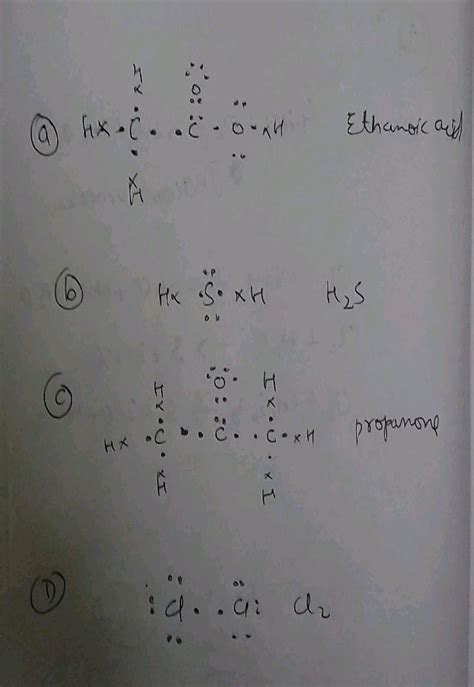 H
x
O
(a) Hx . C . . C . O . xH Ethanoic acid
x
H
(b) Hx . S . xH H₂S
(c) H O H
x x
Hx . C . . C . . C . xH propanone
x x
H H
(D) Cl . . Cl Cl₂